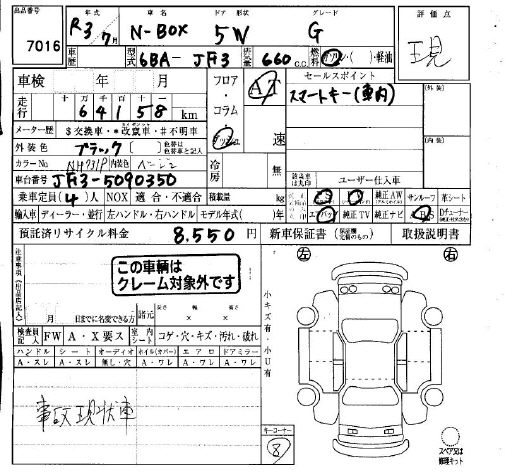 出品番号 7016 年式 R3/7月 車名 N-BOX ドア 形状 5W グレード G 評価点 現
車歴 型式 6BA-JF3 排気量 660 c.c. 燃料 ガソリン・( )・軽油
車検 年 月 フロア・コラム・ダッシュ AT セールスポイント (外装)
走行 十万 万 千 百 十 一 6 4 1 5 8 km スマートキー(車内)
メーター歴 $交換車・*改竄車・#不明車 速
外装色 ブラック ( ) 色替車と記入 (内装)
カラーNo NH731P 内装色 ベージュ 冷房 無 ユーザー仕入車
車台番号 JF3-5090350
乗車定員(4)人 NOX 適合・不適合 積載量 kg 純正AW サンルーフ 革シート
輸入車 ディーラー・並行 左ハンドル・右ハンドル モデル年式( ) エアバック 純正TV 純正ナビ
預託済リサイクル料金 8,550 円 新車保証書 取扱説明書
この車輌は
クレーム対象外です
左 右
月 日までに名変できる方 諸元 長さ 幅 高さ × ×
小キズ有・小U有
検査員記入 FW A・X要ス 室内シート コゲ・穴・キズ・汚れ・破れ
ハンドル シート オーディオ ホイル(カバー) エアロ ドアミラー
A・スレ A・スレ 無し・穴 A・ワレ A・ワレ A・ワレ
事故現状車
キーコーナー
8
スペア又は
修理キット